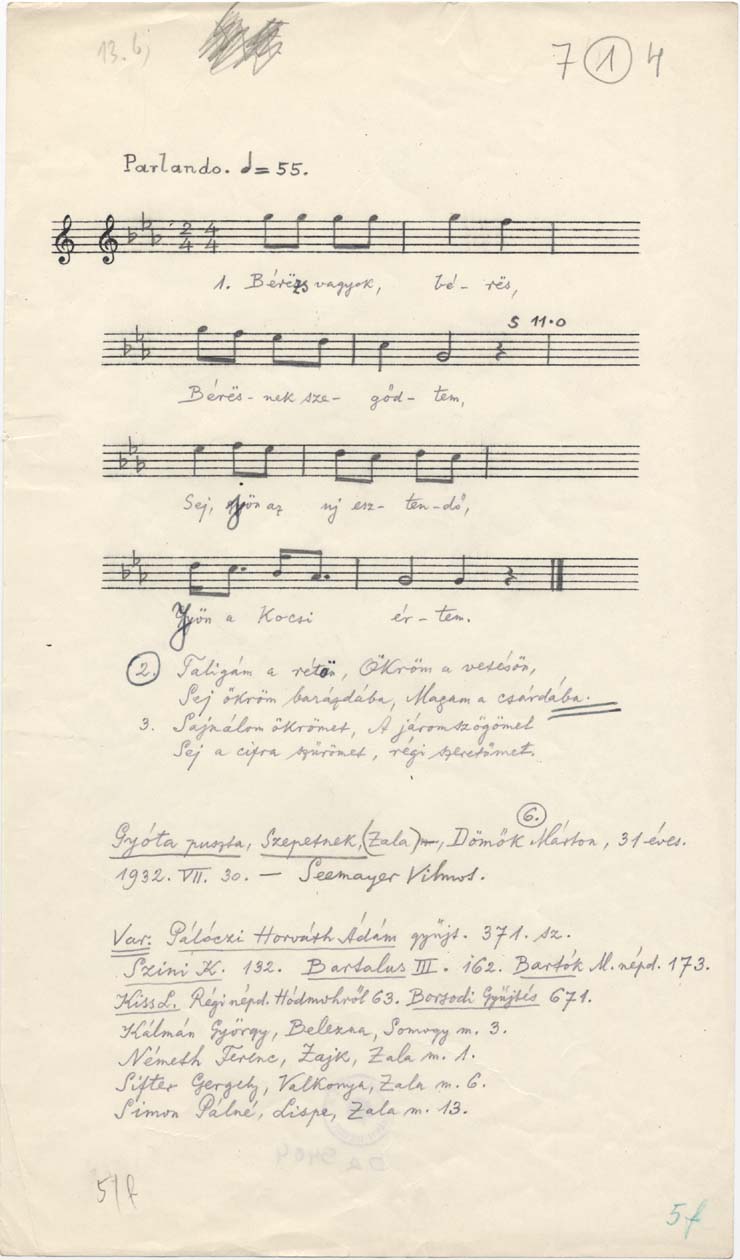 13. b)
7 1 4
Parlando. = 55.
2 4
4 4
1. Bérëszs vagyok, bé- rës,
5 11.0
Bérës- nek sze- gőd- tem,
Sej, gyön az uj esz- ten- dő,
Gyön a Kocsi ér- tem.
2. Taligám a rétön, Ökröm a vetésön,
Sej ökröm barázdába, Magam a csárdába.
3. Sajnálom ökrömet, A járomszögömet
Sej a cifra szűrömet, régi szeretőmet.
6.
Gyóta puszta, Szepetnek, (Zala), Dömők Márton, 31 éves.
1932. VII. 30. — Seemayer Vilmos.
Var. Pálóczi Horváth Ádám gyűjt. 371. sz.
Szini K. 132. Bartalus III. 162. Bartók M. népd. 173.
Kiss L. Régi népd. Hódmvhről 63. Borsodi Gyűjtés 671.
Kálmán György, Belezna, Somogy m. 3.
Németh Ferenc, Zajk, Zala m. 1.
Sifter Gergely, Valkonya, Zala m. 6.
Simon Pálné, Lispe, Zala m. 13.
5/f
5f